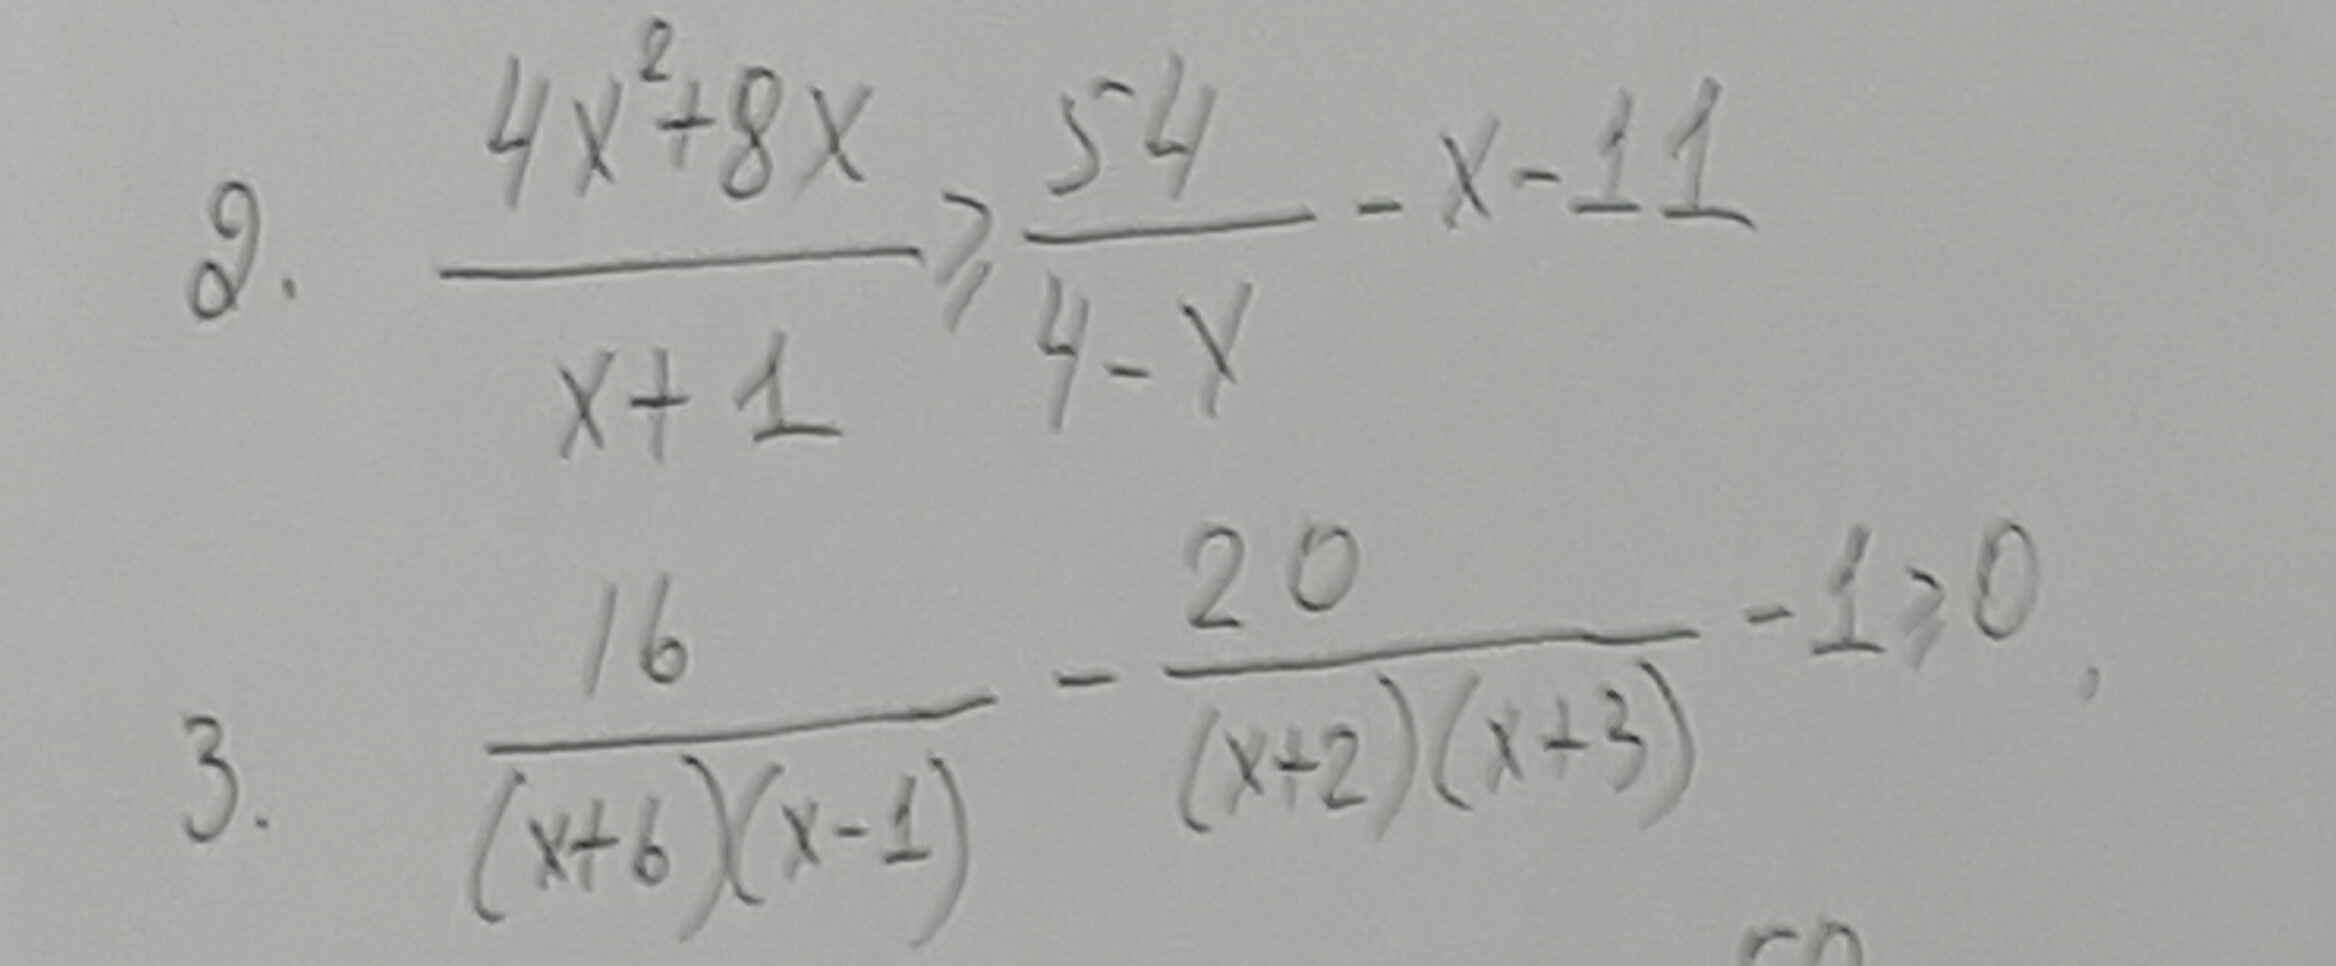 2. (4x²+8x)/(x+1) ⩾ 54/(4-x) - x - 11
3. 16/((x+6)(x-1)) - 20/((x+2)(x+3)) - 1 ⩾ 0,